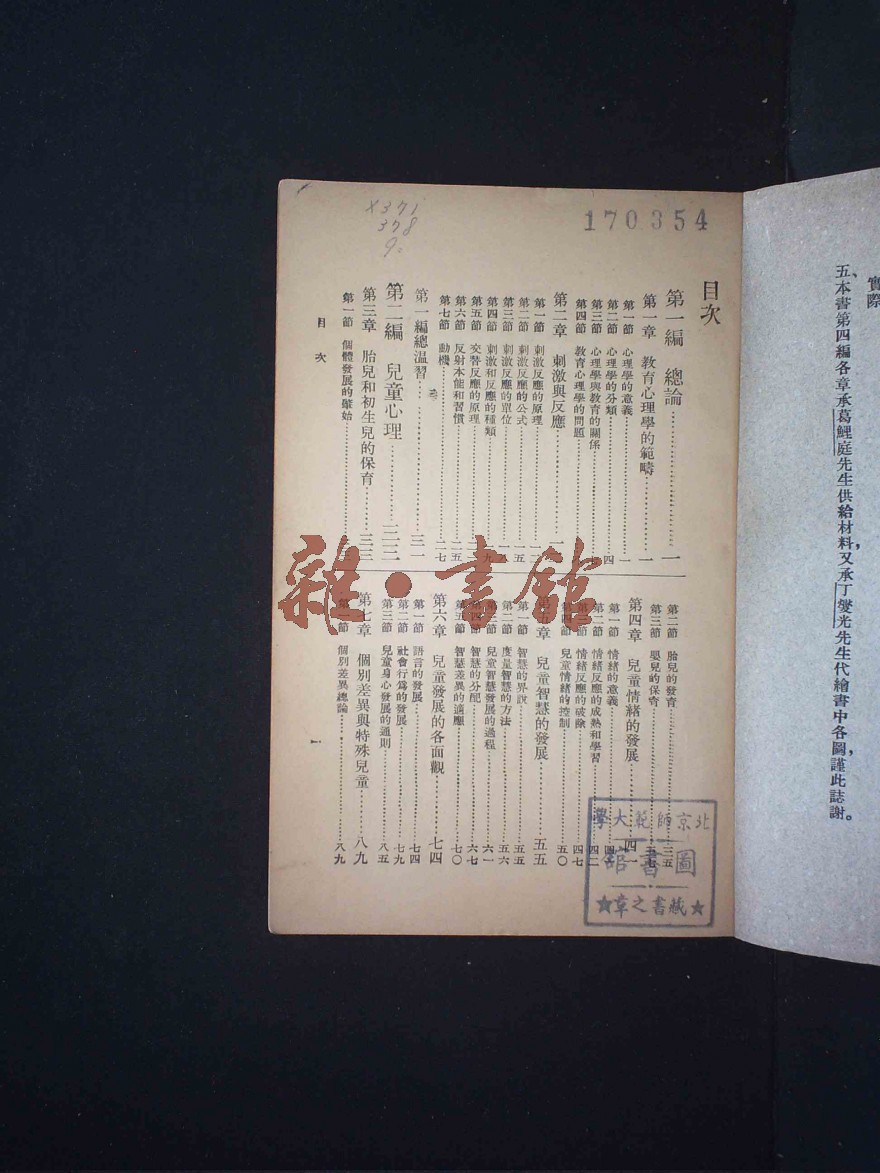 實際
五、本書第四編各章承葛鯉庭先生供給材料，又承丁燮光先生代繪書中各圖，謹此誌謝。
X371
378
9.
170354
目次
第一編 總論……一
第一章 教育心理學的範疇……一
第一節 心理學的意義……一
第二節 心理學的分類……四
第三節 心理學與教育的關係
第四節 教育心理學的問題
第二章 刺激與反應
第一節 刺激反應的原理
第二節 刺激反應的公式……一五
第三節 刺激反應的單位
第四節 刺激和反應的種類
第五節 交替反應的原理
第六節 反射本能和習慣……二五
第七節 動機……二七
第一編總溫習……三一
第二編 兒童心理……三三
第三章 胎兒和初生兒的保育……三三
第一節 個體發展的肇始
第二節 胎兒的發育……三五
第三節 嬰兒的保育
第四章 兒童情緒的發展……四一
第一節 情緒的意義
第二節 情緒反應的成熟和學習……四二
第三節 情緒反應的破除……四七
第四節 兒童情緒的控制……五〇
第五章 兒童智慧的發展……五五
第一節 智慧的界說……五五
第二節 度量智慧的方法……五六
第三節 兒童智慧發展的過程……六一
第四節 智慧的分配……六七
第五節 智慧差異的適應……七〇
第六章 兒童發展的各面觀……七四
第一節 語言的發展……七四
第二節 社會行為的發展……七九
第三節 兒童身心發展的通則……八五
第七章 個別差異與特殊兒童……八九
第一節 個別差異總論……八九
目次
一
北京師範大學
圖書館
★藏書之章★
雜·書館